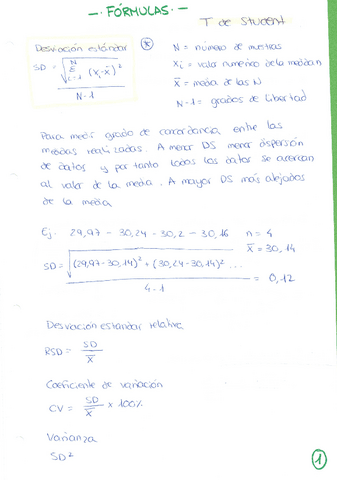 - FÓRMULAS. -
T de Student
Desviación estándar (*)
SD = √ Σ (xi - x̄)²
N
i=1
N-1
N = número de muestras
Xi = valor numérico de la medida n
X̄ = media de las N
N-1 = grados de libertad
Para medir grado de concordancia entre las
medidas realizadas. A menor DS menor dispersión
de datos y por tanto todos los datos se acercan
al valor de la media. A mayor DS más alejados
de la media
Ej. 29,97 - 30,24 - 30,2 - 30,16 n = 4
X̄ = 30,14
SD = √ (29,97-30,14)² + (30,24-30,14)² ...
= 0,12
4-1
Desviación estandar relativa
RSD = SD / X̄
Coeficiente de variación
CV = SD / X̄ x 100%
Varianza
SD²
1